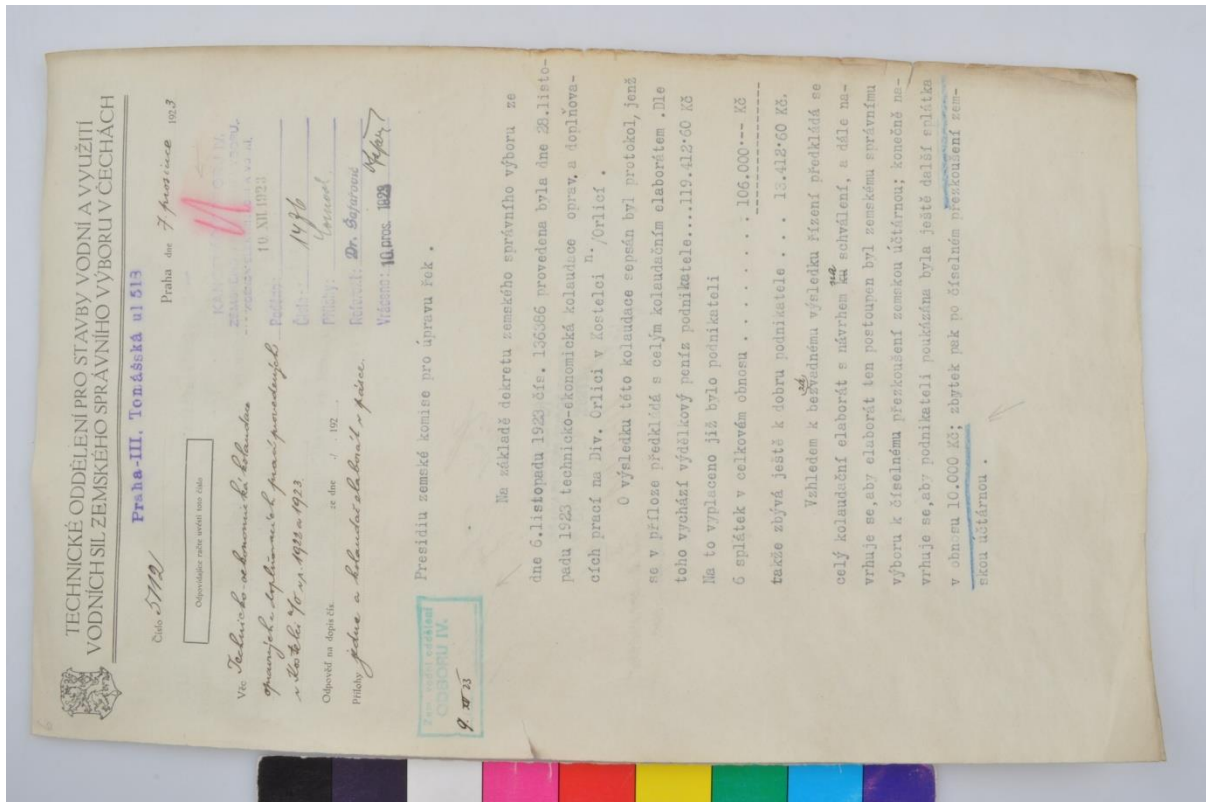 TECHNICKÉ ODDĚLENÍ PRO STAVBY VODNÍ A VYUŽITÍ
VODNÍCH SIL ZEMSKÉHO SPRÁVNÍHO VÝBORU V ČECHÁCH
Praha-III. Tomášská ul 518
Číslo 5112
Praha dne 7 prosince 1923
Odpovídajíce račte uvésti toto číslo
Věc Technicko-ekonomická kolaudace
opravných a doplňovacích prací provedených
v Kostelci n/O v r. 1922 a 1923.
Odpověď na dopis čís. ze dne 192
Přílohy jedna a kolaudač. elaborát v pásce.
10 XII. 1923
Podán:
Číslo: 1436
Přílohy:
Referent: Dr. Šafařovič
Vráceno: 10 pros. 1923
Zem. vodní oddělení
ODBORU IV.
9. XII 23
Presidiu zemské komise pro úpravu řek .
Na základě dekretu zemského správního výboru ze
dne 6.listopadu 1923 čís. 136386 provedena byla dne 28.listo-
padu 1923 technicko-ekonomická kolaudace oprav. a doplňova-
cích prací na Div. Orlici v Kostelci n./Orlicí .
O výsledku této kolaudace sepsán byl protokol, jenž
se v příloze předkládá s celým kolaudačním elaborátem .Dle
toho vychází výdělkový peníz podnikatele...119.412·60 Kč
Na to vyplaceno již bylo podnikateli
6 splátek v celkovém obnosu . . . . . . . . 106.000·-- Kč
takže zbývá ještě k dobru podnikatele . . . 13.412·60 Kč.
Vzhledem k bezzávadnému výsledku řízení předkládá se
celý kolaudační elaborát s návrhem na schválení, a dále na-
vrhuje se,aby elaborát ten postoupen byl zemskému správnímu
výboru k číselnému přezkoušení zemskou účtárnou; konečně na-
vrhuje se,aby podnikateli poukázána byla ještě další splátka
v obnosu 10.000 Kč; zbytek pak po číselném přezkoušení zem-
skou účtárnou .